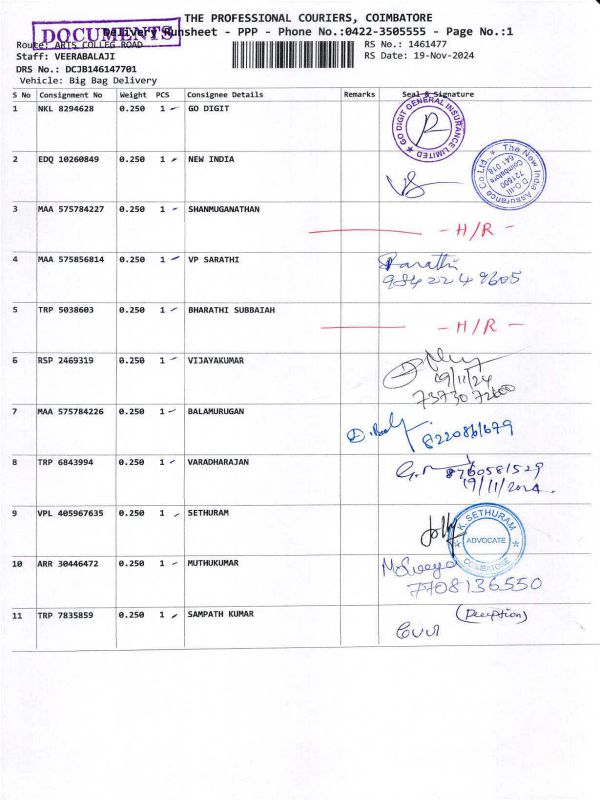 THE PROFESSIONAL COURIERS, COIMBATORE
Delivery Runsheet - PPP - Phone No.:0422-3505555 - Page No.:1
DOCUMENTS
Route: ARTS COLLEG ROAD
RS No.: 1461477
Staff: VEERABALAJI
RS Date: 19-Nov-2024
DRS No.: DCJB146147701
Vehicle: Big Bag Delivery
S No Consignment No Weight PCS Consignee Details Remarks Seal & Signature
1 NKL 8294628 0.250 1 GO DIGIT
GO DIGIT GENERAL INSURANCE LIMITED
2 EDQ 10260849 0.250 1 NEW INDIA
The New India Assurance Co Ltd.
D.O-III
721500
Coimbatore
641 018
3 MAA 575784227 0.250 1 SHANMUGANATHAN
- H/R -
4 MAA 575856814 0.250 1 VP SARATHI
Sarathi
984 22 4 9605
5 TRP 5038603 0.250 1 BHARATHI SUBBAIAH
- H/R -
6 RSP 2469319 0.250 1 VIJAYAKUMAR
19/11/24
73730 72600
7 MAA 575784226 0.250 1 BALAMURUGAN
8220861679
8 TRP 6843994 0.250 1 VARADHARAJAN
8760581529
19/11/2024.
9 VPL 405967635 0.250 1 SETHURAM
K. SETHURAM
ADVOCATE
COIMBATORE
10 ARR 30446472 0.250 1 MUTHUKUMAR
7708136550
11 TRP 7835859 0.250 1 SAMPATH KUMAR